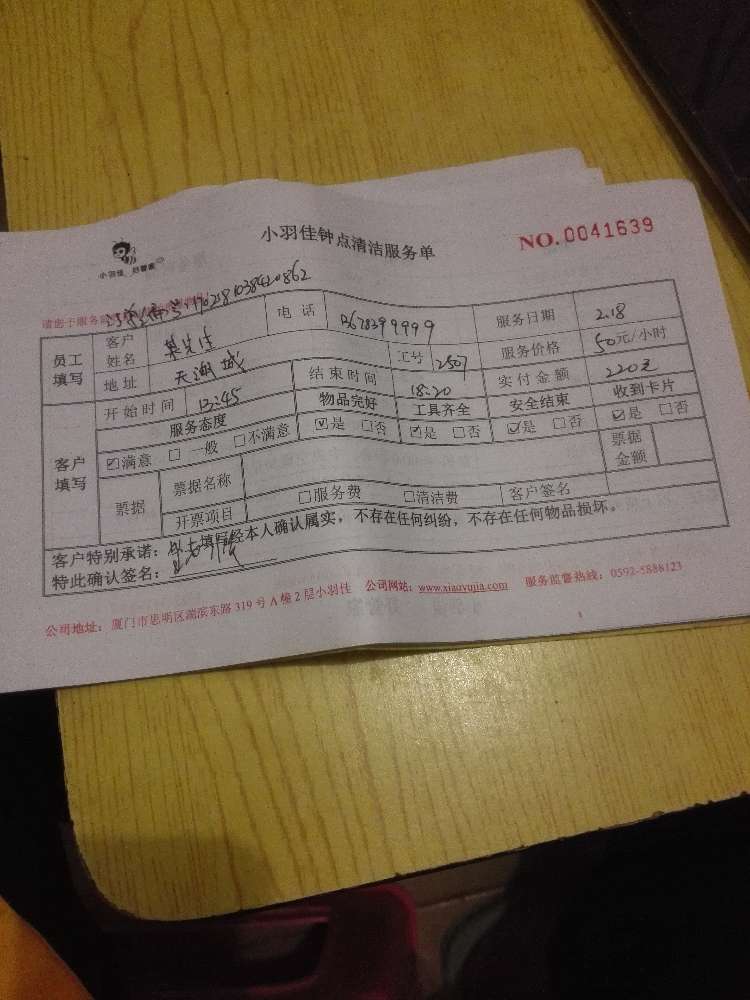 小羽佳钟点清洁服务单
NO.0041639
小羽佳 好管家
请您于服务
员工填写 客户姓名 电话 13678399999 服务日期 2.18
地址 天湖城 工号 2507 服务价格 50元/小时
开始时间 13:45 结束时间 18:20 实付金额 220元
客户填写 服务态度 物品完好 工具齐全 安全结束 收到卡片
☑满意 □一般 □不满意 ☑是 □否 ☑是 □否 ☑是 □否 ☑是 □否
票据 票据名称 票据金额
开票项目 □服务费 □清洁费 客户签名
客户特别承诺：以上填写经本人确认属实，不存在任何纠纷，不存在任何物品损坏。
特此确认签名：
公司地址：厦门市思明区湖滨东路319号A幢2层小羽佳 公司网站：www.xiaoyujia.com 服务监督热线：0592-5886123